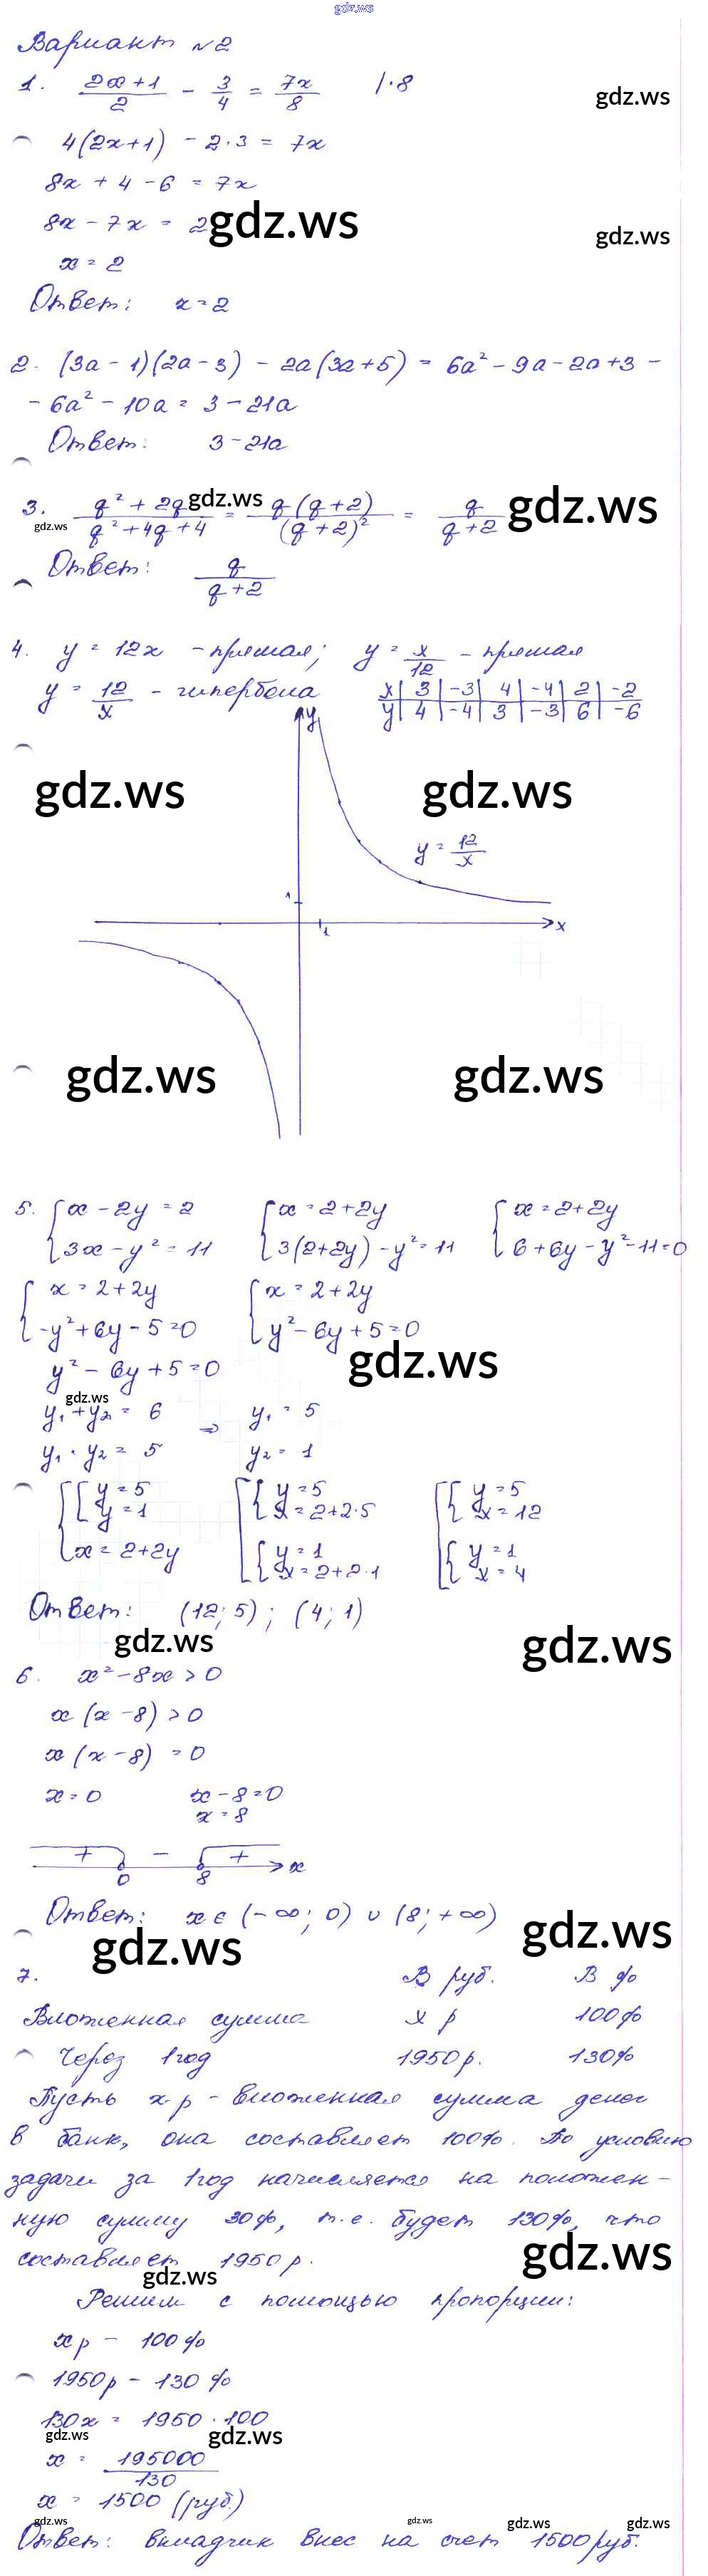 gdz.ws
Вариант №2
1. (2x+1)/2 - 3/4 = 7x/8 |·8
gdz.ws
4(2x+1) - 2·3 = 7x
8x + 4 - 6 = 7x
8x - 7x = 2
gdz.ws
gdz.ws
x = 2
Ответ: x = 2
2. (3a - 1)(2a - 3) - 2a(3a + 5) = 6a² - 9a - 2a + 3 -
- 6a² - 10a = 3 - 21a
Ответ: 3 - 21a
3. (q² + 2q)/(q² + 4q + 4) = q(q+2)/(q+2)² = q/(q+2)
gdz.ws
gdz.ws
gdz.ws
Ответ: q/(q+2)
4. y = 12x - прямая; y = x/12 - прямая
y = 12/x - гипербола
x | 3 | -3 | 4 | -4 | 2 | -2
y | 4 | -4 | 3 | -3 | 6 | -6
y
gdz.ws gdz.ws
y = 12/x
1
x
1
gdz.ws gdz.ws
5. { x - 2y = 2 { x = 2 + 2y { x = 2 + 2y
{ 3x - y² = 11 { 3(2+2y) - y² = 11 { 6 + 6y - y² - 11 = 0
{ x = 2 + 2y { x = 2 + 2y
{ -y² + 6y - 5 = 0 { y² - 6y + 5 = 0
gdz.ws
y² - 6y + 5 = 0
gdz.ws
y₁ + y₂ = 6 ⇒ y₁ = 5
y₁ · y₂ = 5 y₂ = 1
{ [ y = 5 [ { y = 5 [ { y = 5
y = 1 x = 2 + 2·5 x = 12
x = 2 + 2y { y = 1 { y = 1
x = 2 + 2·1 x = 4
Ответ: (12; 5); (4; 1)
gdz.ws gdz.ws
6. x² - 8x > 0
x(x - 8) > 0
x(x - 8) = 0
x = 0 x - 8 = 0
x = 8
+ - + x
0 8
Ответ: x ∈ (-∞; 0) ∪ (8; +∞)
gdz.ws gdz.ws
7. В руб. В %
Вложенная сумма x р 100%
Через 1 год 1950 р. 130%
Пусть x р - вложенная сумма денег
в банк, она составляет 100%. По условию
задачи за 1 год начисляется на положен-
ную сумму 30%, т.е. будет 130%, что
составляет 1950 р.
gdz.ws
gdz.ws
Решим с помощью пропорции:
x р - 100%
1950 р - 130%
130x = 1950 · 100
gdz.ws gdz.ws
x = 195000/130
x = 1500 (руб.)
gdz.ws gdz.ws gdz.ws gdz.ws
Ответ: вкладчик внес на счет 1500 руб.